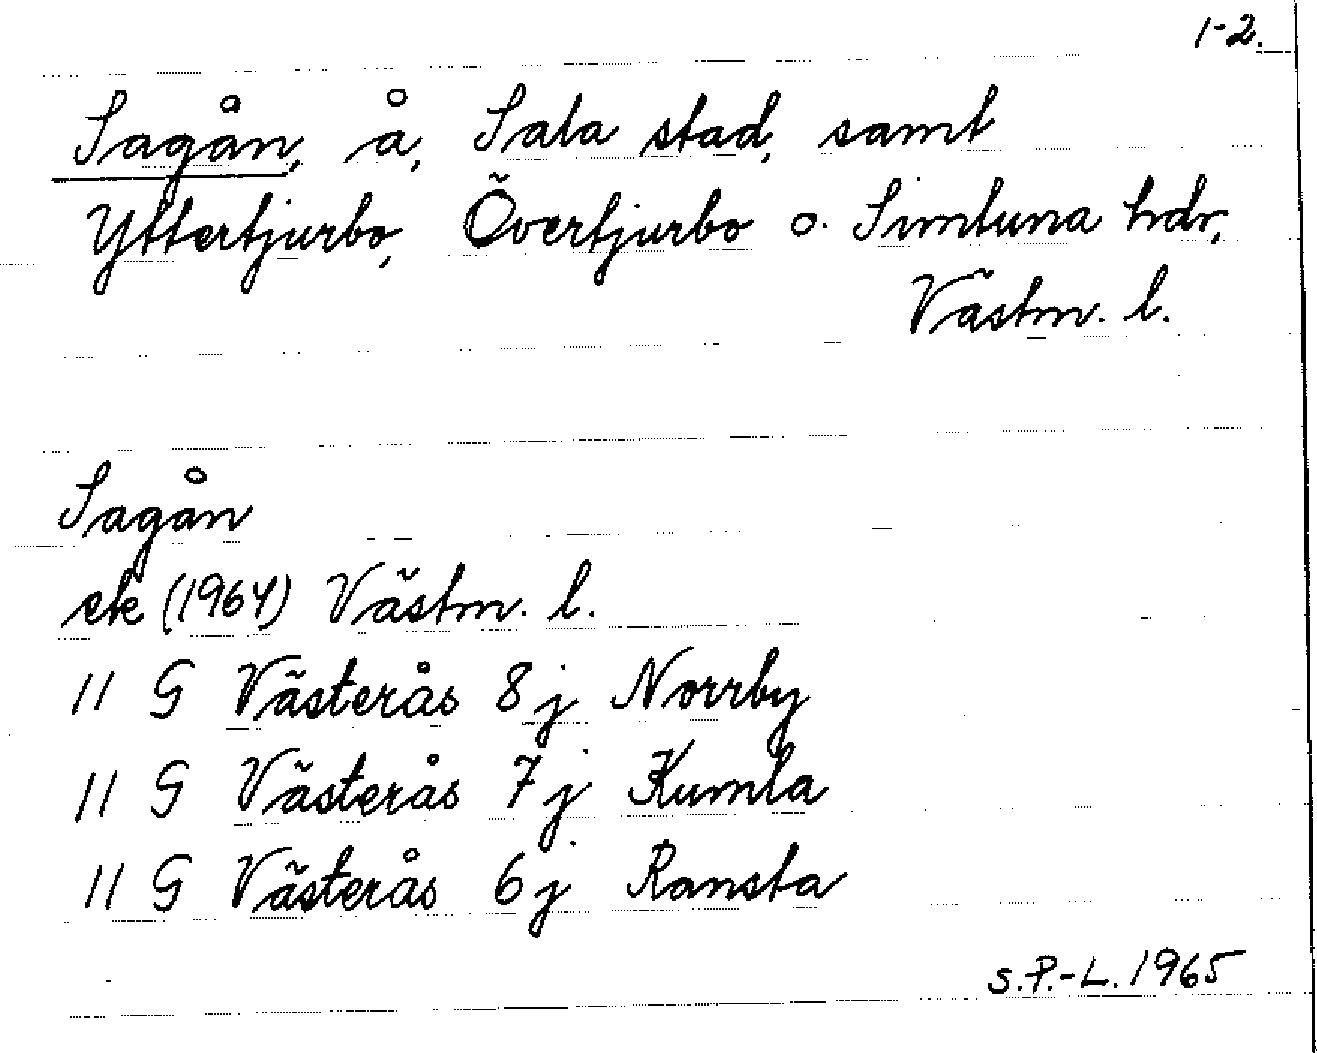 1-2.
Sagån, å, Sala stad, samt
Yttertjurbo, Övertjurbo o. Simtuna hdr,
Västm. l.
Sagån
ek (1964) Västm. l.
11 G Västerås 8 j Norrby
11 G Västerås 7 j Kumla
11 G Västerås 6 j Ransta
S.P.-L. 1965